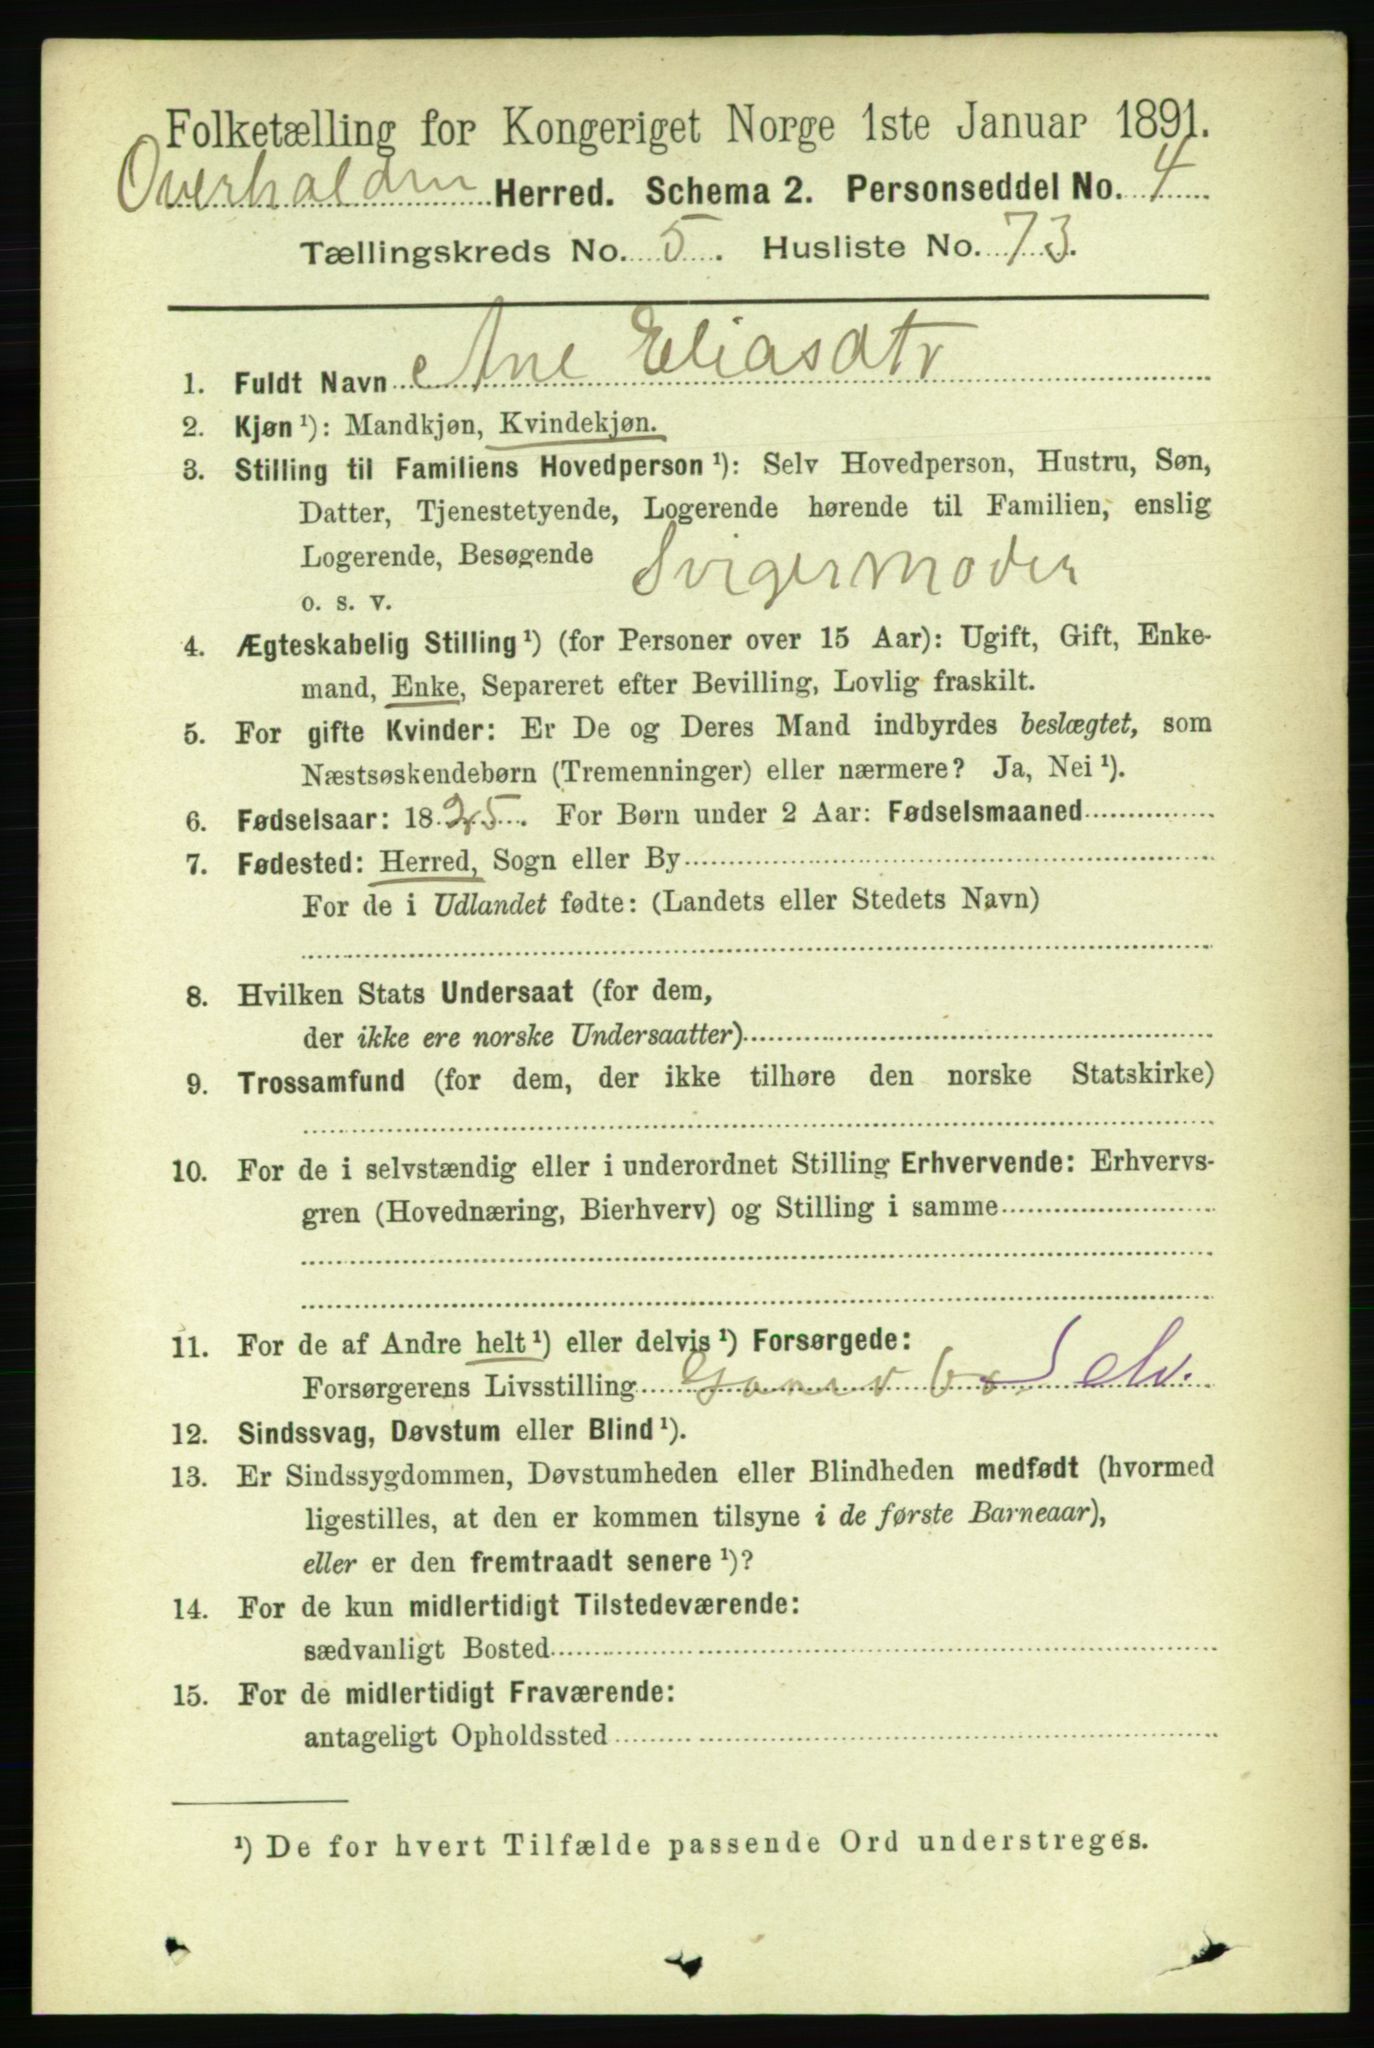 Folketælling for Kongeriget Norge 1ste Januar 1891.
Overhalden Herred. Schema 2. Personseddel No. 4
Tællingskreds No. 5. Husliste No. 73.
1. Fuldt Navn Ane Eliasdtr
2. Kjøn ¹): Mandkjøn, Kvindekjøn.
3. Stilling til Familiens Hovedperson ¹): Selv Hovedperson, Hustru, Søn,
Datter, Tjenestetyende, Logerende hørende til Familien, enslig
Logerende, Besøgende Svigermoder
o. s. v.
4. Ægteskabelig Stilling ¹) (for Personer over 15 Aar): Ugift, Gift, Enke-
mand, Enke, Separeret efter Bevilling, Lovlig fraskilt.
5. For gifte Kvinder: Er De og Deres Mand indbyrdes beslægtet, som
Næstsøskendebørn (Tremenninger) eller nærmere? Ja, Nei ¹).
6. Fødselsaar: 1825. For Børn under 2 Aar: Fødselsmaaned
7. Fødested: Herred, Sogn eller By
For de i Udlandet fødte: (Landets eller Stedets Navn)
8. Hvilken Stats Undersaat (for dem,
der ikke ere norske Undersaatter)
9. Trossamfund (for dem, der ikke tilhøre den norske Statskirke)
10. For de i selvstændig eller i underordnet Stilling Erhvervende: Erhvervs-
gren (Hovednæring, Bierhverv) og Stilling i samme
11. For de af Andre helt ¹) eller delvis ¹) Forsørgede:
Forsørgerens Livsstilling Selv.
12. Sindssvag, Døvstum eller Blind ¹).
13. Er Sindssygdommen, Døvstumheden eller Blindheden medfødt (hvormed
ligestilles, at den er kommen tilsyne i de første Barneaar),
eller er den fremtraadt senere ¹)?
14. For de kun midlertidigt Tilstedeværende:
sædvanligt Bosted
15. For de midlertidigt Fraværende:
antageligt Opholdssted
¹) De for hvert Tilfælde passende Ord understreges.